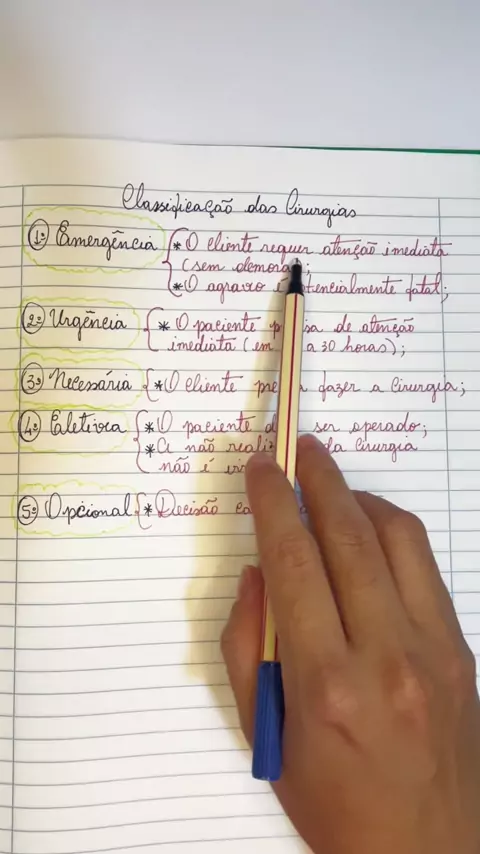 Classificação das Cirurgias
1º Emergência * O cliente requer atenção imediata
(sem demora);
* O agravo é potencialmente fatal;
2º Urgência * O paciente de atenção
imediata (em a 30 horas);
3º Necessária * O cliente fazer a Cirurgia;
4º Eletiva * O paciente ser operado;
* A não da Cirurgia
não é
5º Opcional * Decisão